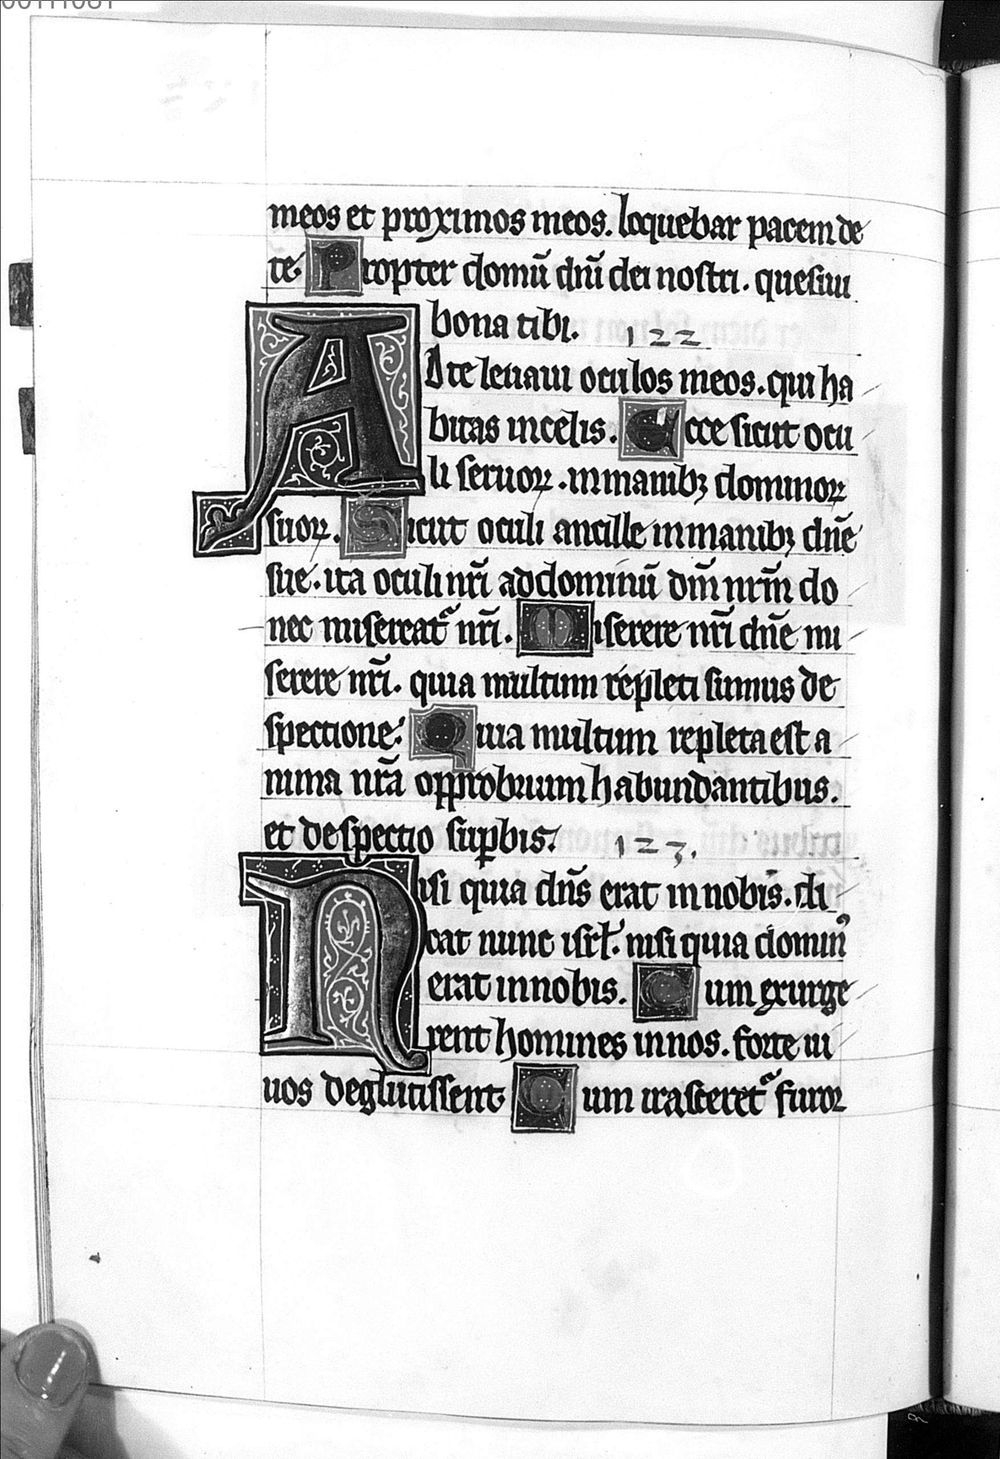 meos et proximos meos. loquebar pacem de
te. Propter domū dn̄i dei nostri. quesiui
bona tibi. 122
Ad te leuaui oculos meos. qui ha
bitas in celis. Ecce sicut ocu
li seruoꝝ. in manibꝫ dominoꝝ
suoꝝ. Sicut oculi ancille in manibꝫ dn̄e
sue. ita oculi nr̄i ad dominū dm̄ nrm̄ do
nec misereat᷑ nr̄i. Miserere nr̄i dn̄e mi
serere nr̄i. quia multum repleti sumus de
spectione. Quia multum repleta est a
nima nr̄a opprobrium habundantibus.
et despectio suꝑbis. 123.
Nisi quia dn̄s erat in nobis. di
cat nunc isrl̄. nisi quia domin᷒
erat in nobis. Cum exurge
rent homines in nos. forte ui
uos deglutissent Cum irasceret᷑ furor